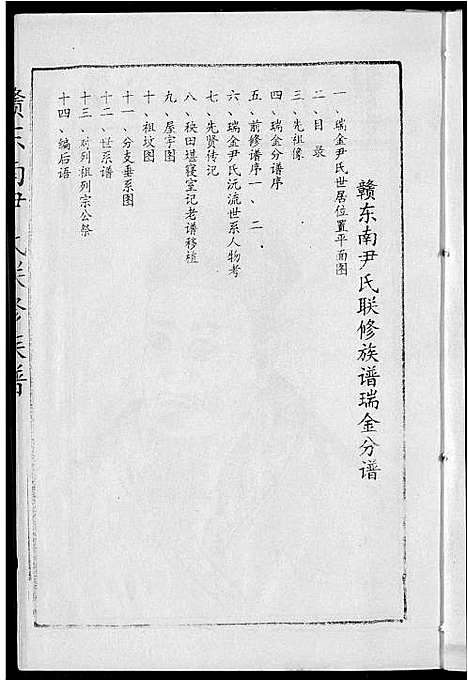 赣东南尹氏联修族谱瑞金分谱
一、瑞金尹氏世居位置平面图
二、目录
三、先祖像
四、瑞金分谱序
五、前修谱序一、二
六、瑞金尹氏沅流世系人物考
七、先贤传记
八、秧田堪寝室记老谱移植
九、屋字图
十、祖坟图
十一、分支垂系图
十二、世系谱
十三、对列祖列宗公祭
十四、编后语
赣东南尹氏联修族谱